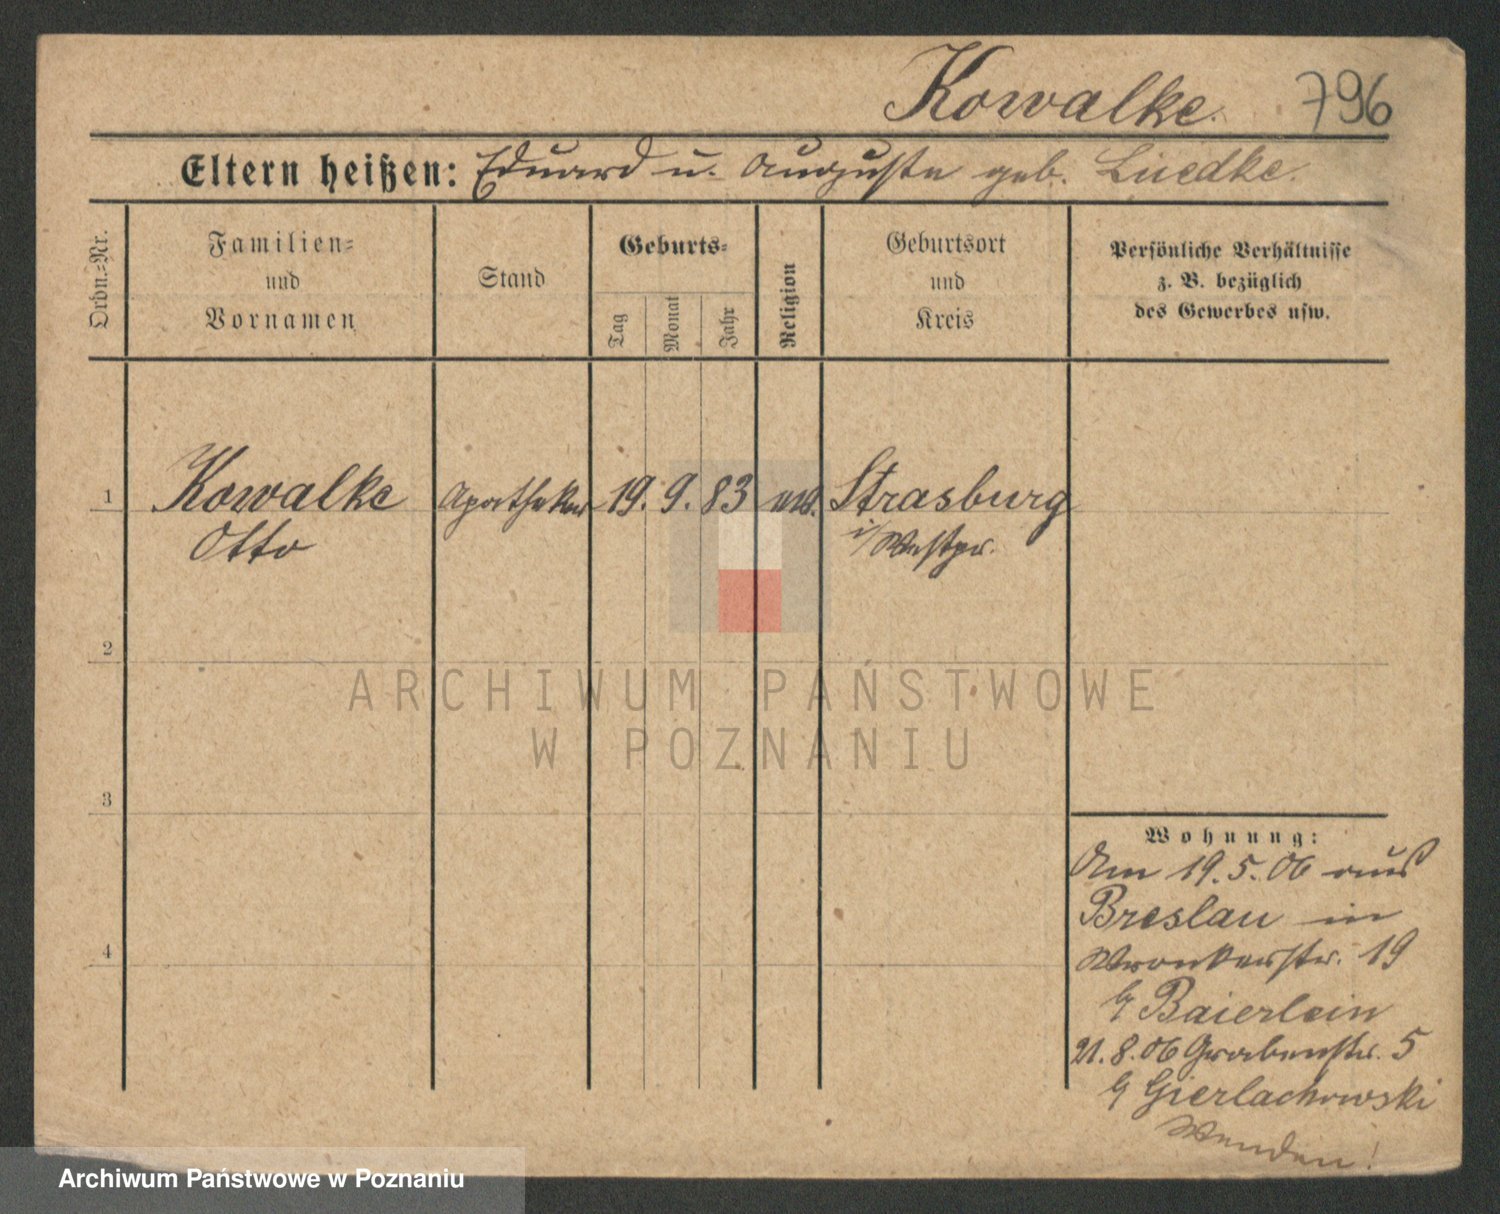 Kowalke. 796
Eltern heißen: Eduard u. Auguste geb. Luedke.
Ordn.-Nr.
Familien-
und
Vornamen
Stand
Geburts-
Tag
Monat
Jahr
Religion
Geburtsort
und
Kreis
Persönliche Verhältnisse
z. B. bezüglich
des Gewerbes usw.
1 Kowalke Apotheker 19. 9. 83 ev. Strasburg
Otto i/Westpr.
2
3
4
ARCHIWUM PAŃSTWOWE
W POZNANIU
Wohnung:
Am 19.5.06 aus
Breslau in
Wronkerstr. 19
b/ Baierlein
21.8.06 Grabenstr. 5
b/ Gierlachowski
Wenden!
Archiwum Państwowe w Poznaniu